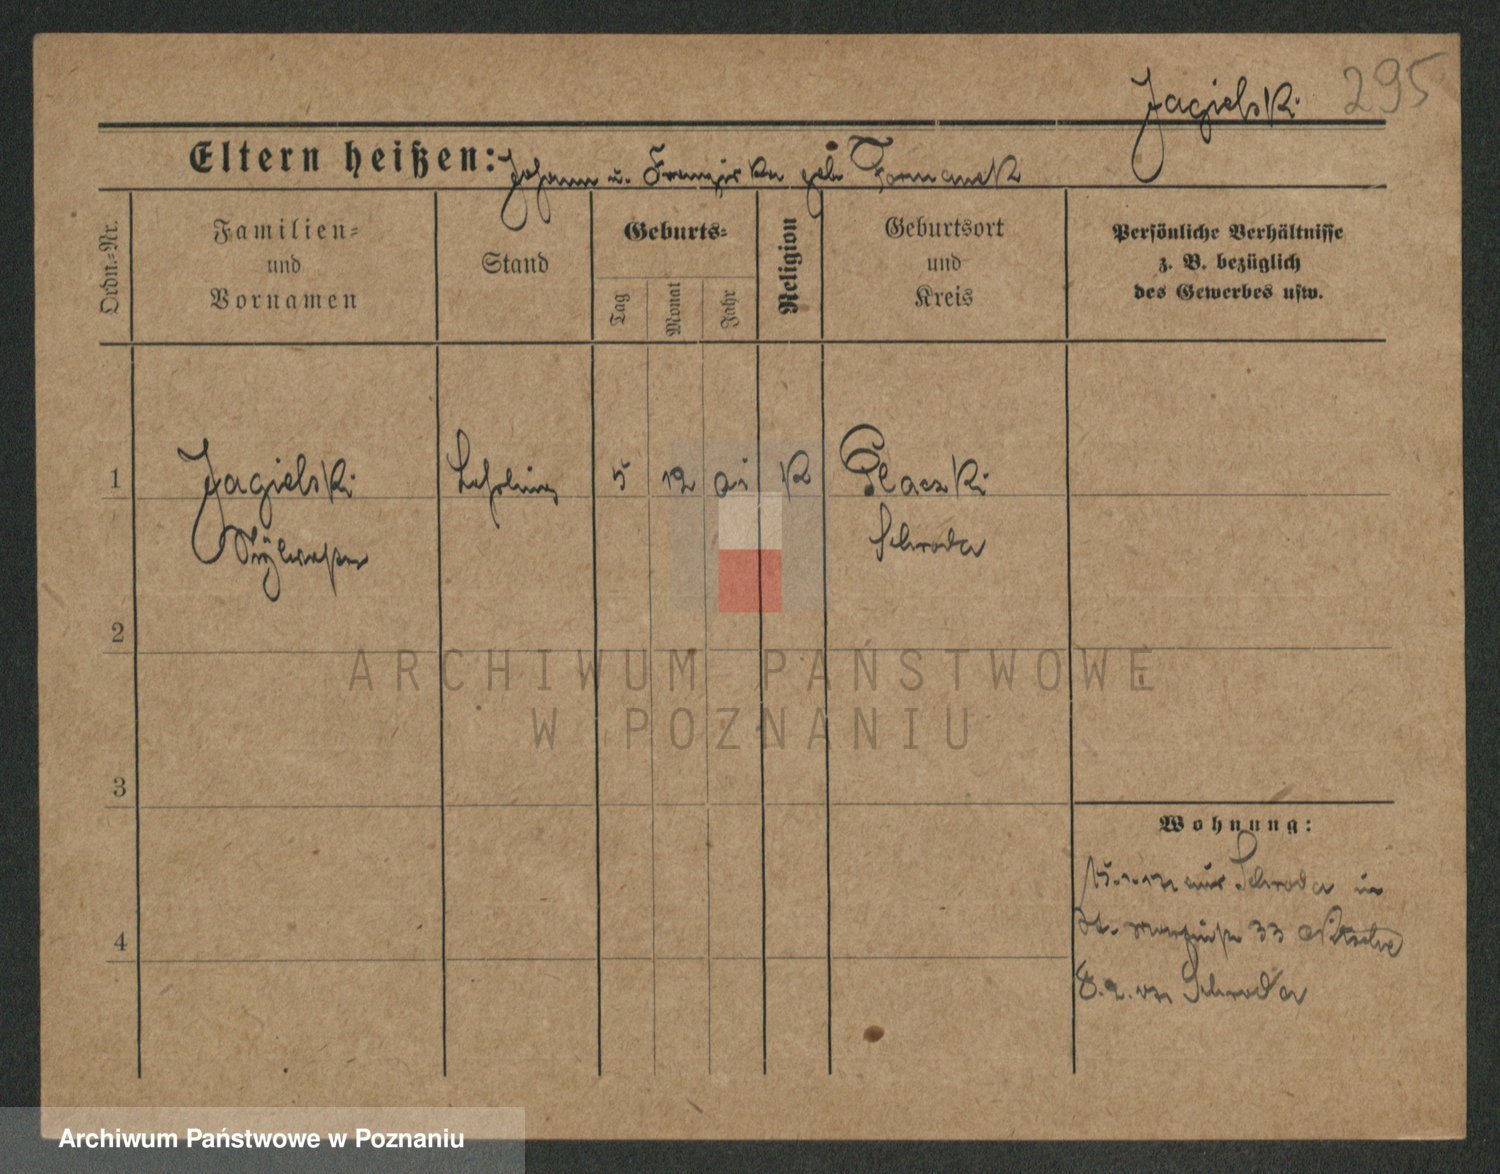 Jagielski 295
Eltern heißen: Johann u. Franziska geb. Formanek
Ordn.-Nr.
Familien-
und
Vornamen
Stand
Geburts-
Tag
Monat
Jahr
Religion
Geburtsort
und
Kreis
Persönliche Verhältnisse
z. B. bezüglich
des Gewerbes usw.
1 Jagielski Lehrling 5 12 K Placzki
Sylvester Schroda
2
3
4
Wohnung:
aus Schroda in
St. Martinstr 33
8. 2. Schroda
ARCHIWUM PAŃSTWOWE
W POZNANIU
Archiwum Państwowe w Poznaniu